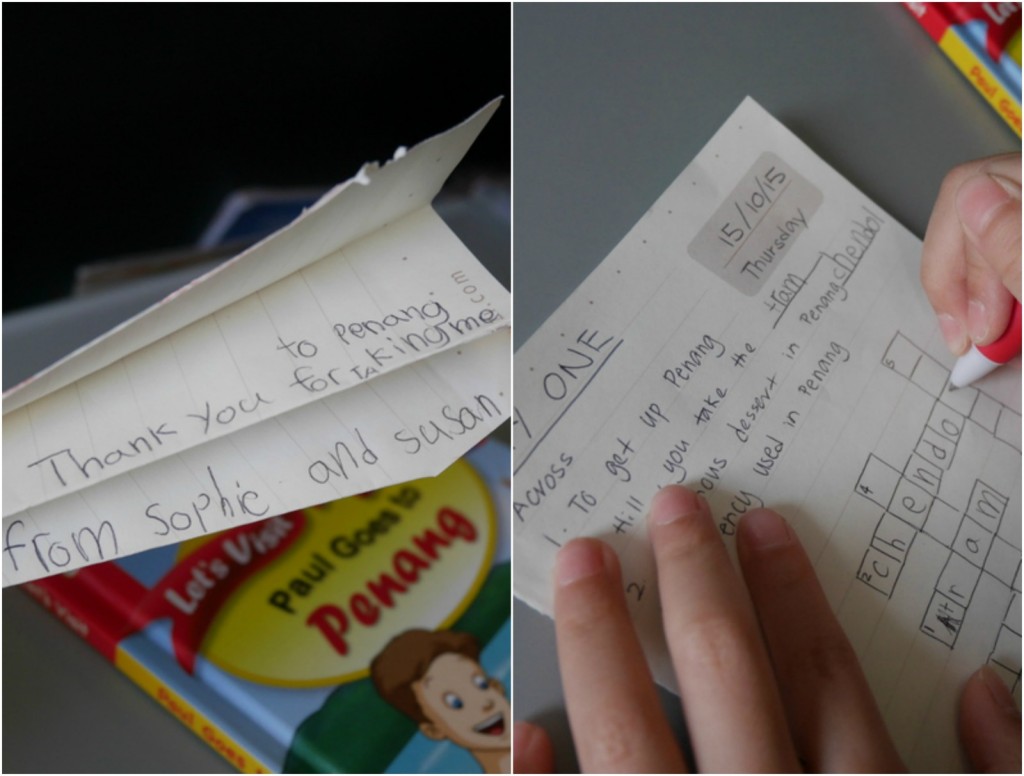 to Penang
mom
Thank you for Taking me
from Sophie and susan.
Let's Visit
Paul Goes to
Penang
Paul Goes
15/10/15
Thursday
ONE
ACROSS
1. To get up Penang
Hill you take the tram
2. dessert in Penang chendol
used in Penang
5
4
2 c h e n d o l
1 t r a m
Paul Goes